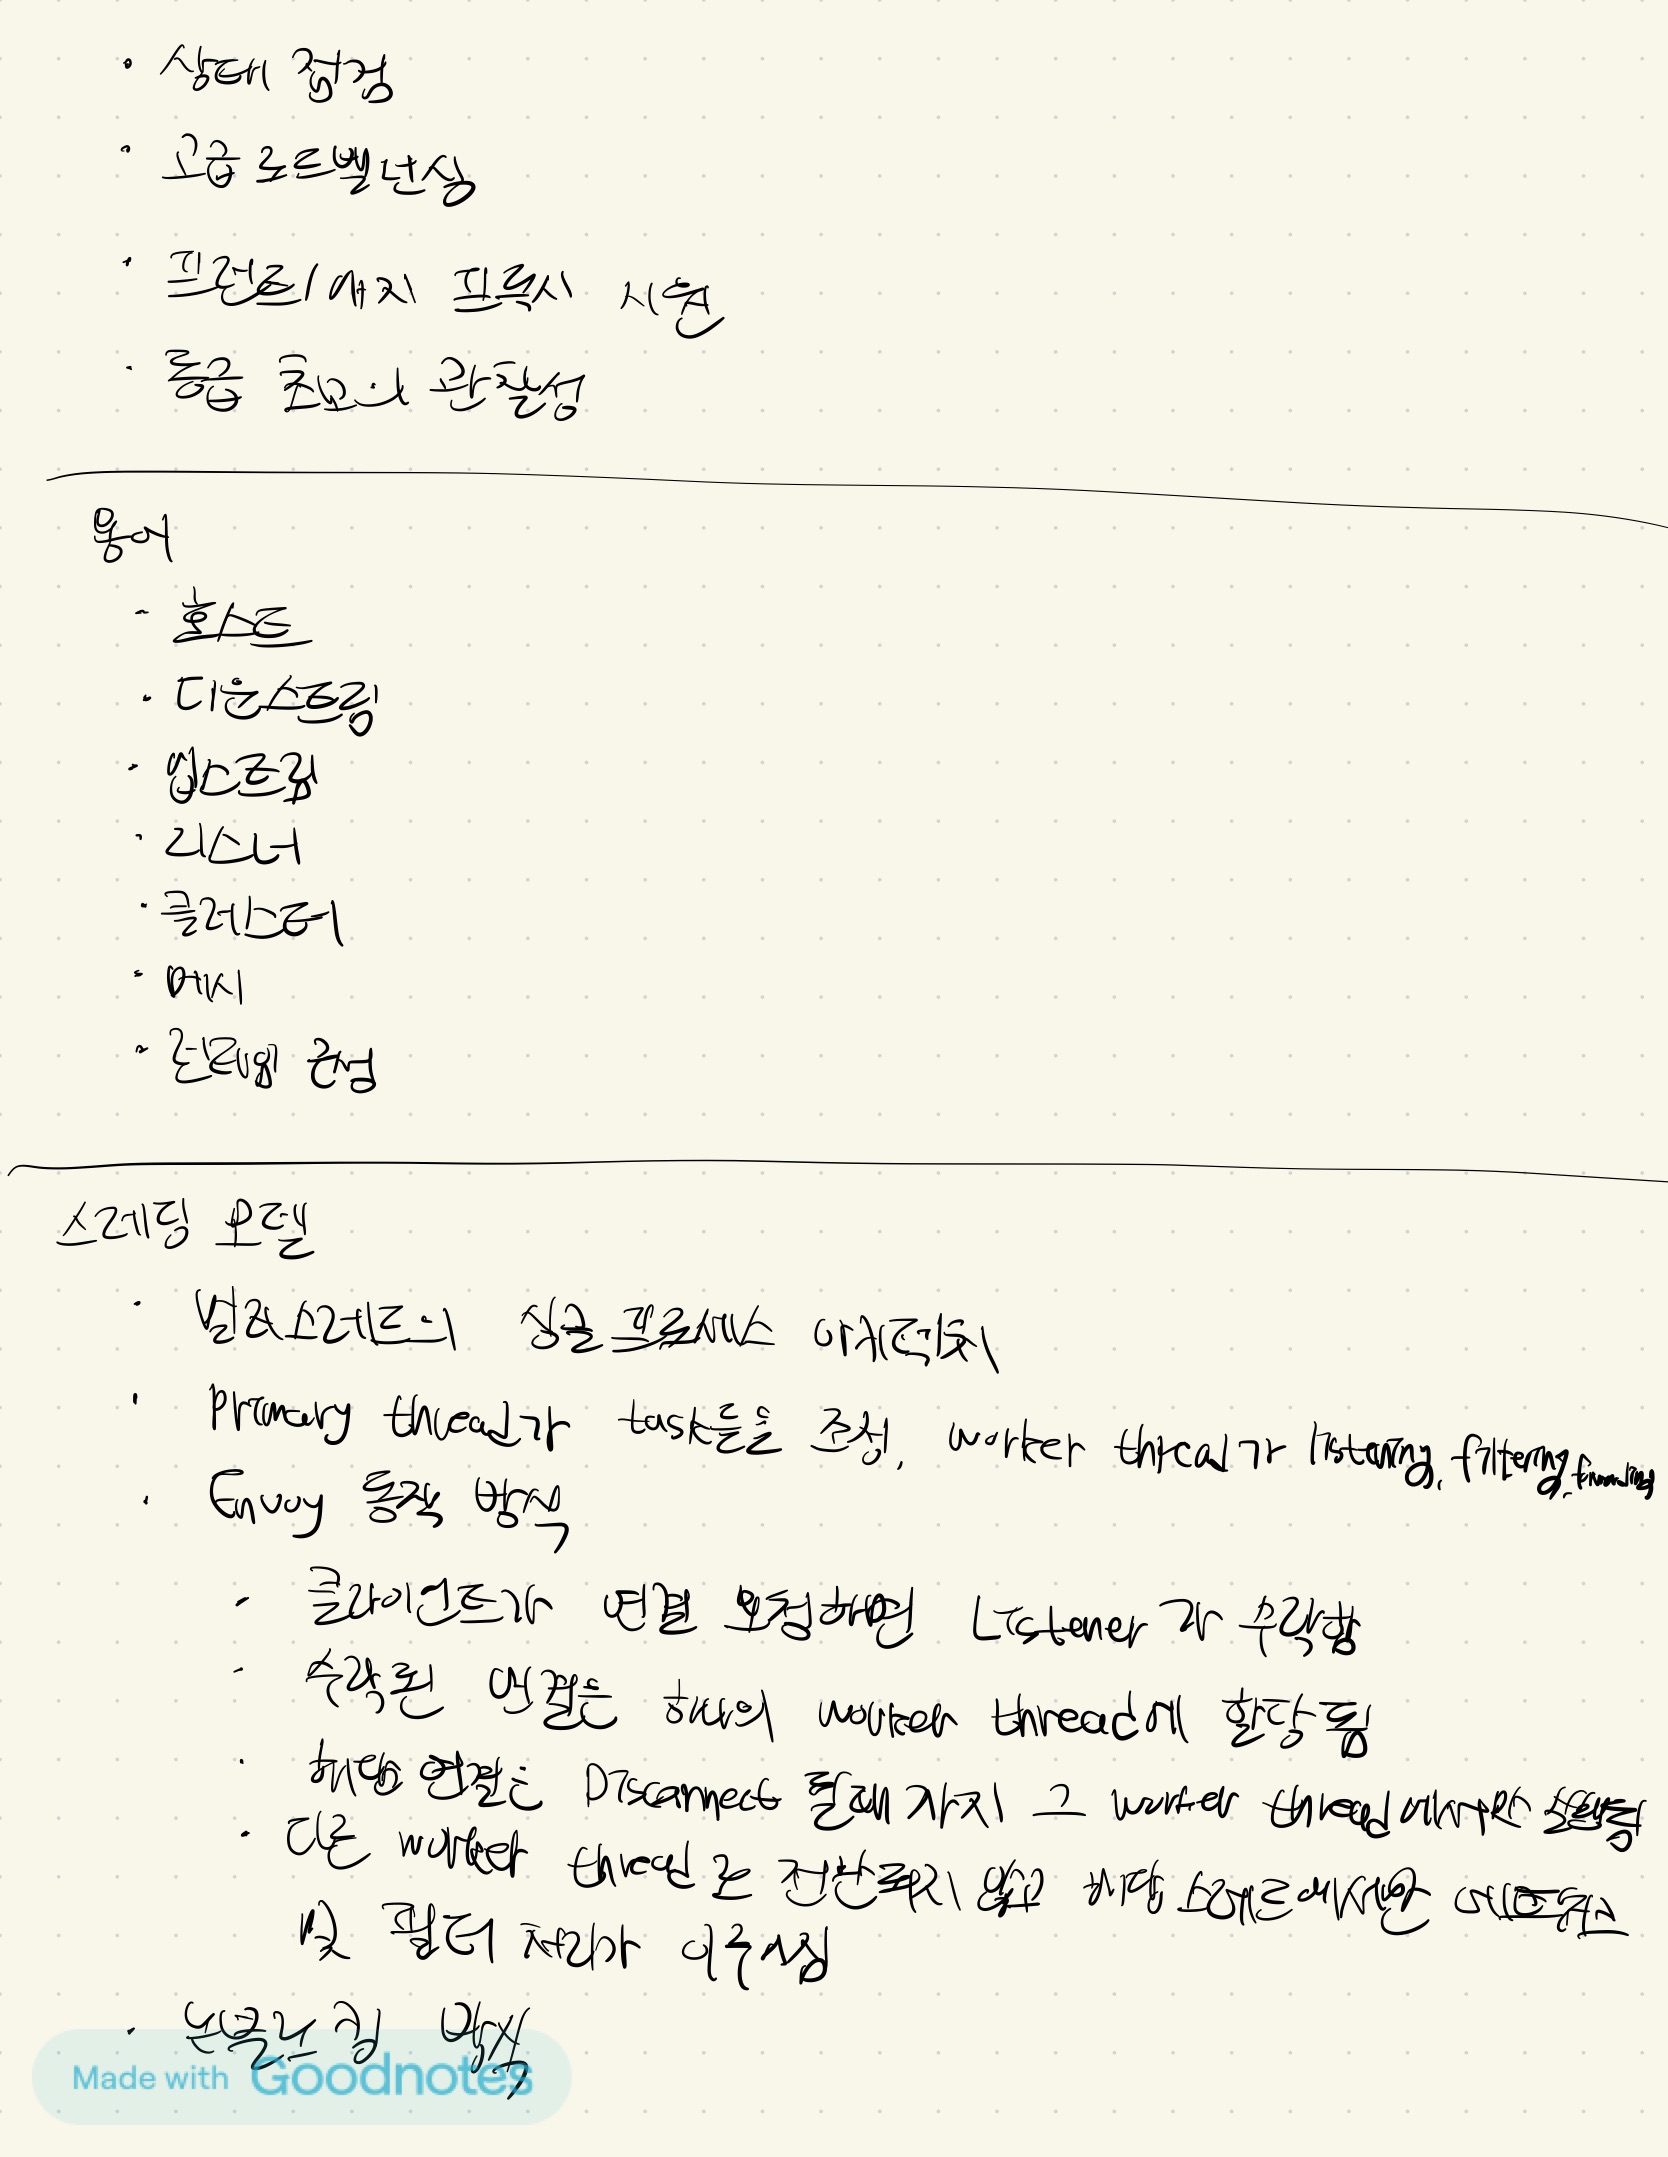 · 상태 점검
· 고급 로드 밸런싱
· 프런트/에지 프록시 지원
· 동급 최고의 관찰성
용어
- 호스트
· 다운스트림
· 업스트림
· 리스너
· 클러스터
· 메시
· 런타임 구성
스레딩 모델
· 멀티스레드의 싱글 프로세스 아키텍처
· Primary thread가 task들을 조정, worker thread가 listening, filtering,
· Envoy 동작 방식
- 클라이언트가 연결 요청하면 Listener가 수락함
- 수락된 연결은 하나의 worker thread에 할당됨
· 해당 연결은 Disconnect 될때 까지 그 worker thread에서만
· 다른 worker thread로 전환되지 않고 해당 스레드에서만 네트워크
및 필터 처리가 이루어짐
· 논블로킹 방식
Made with Goodnotes